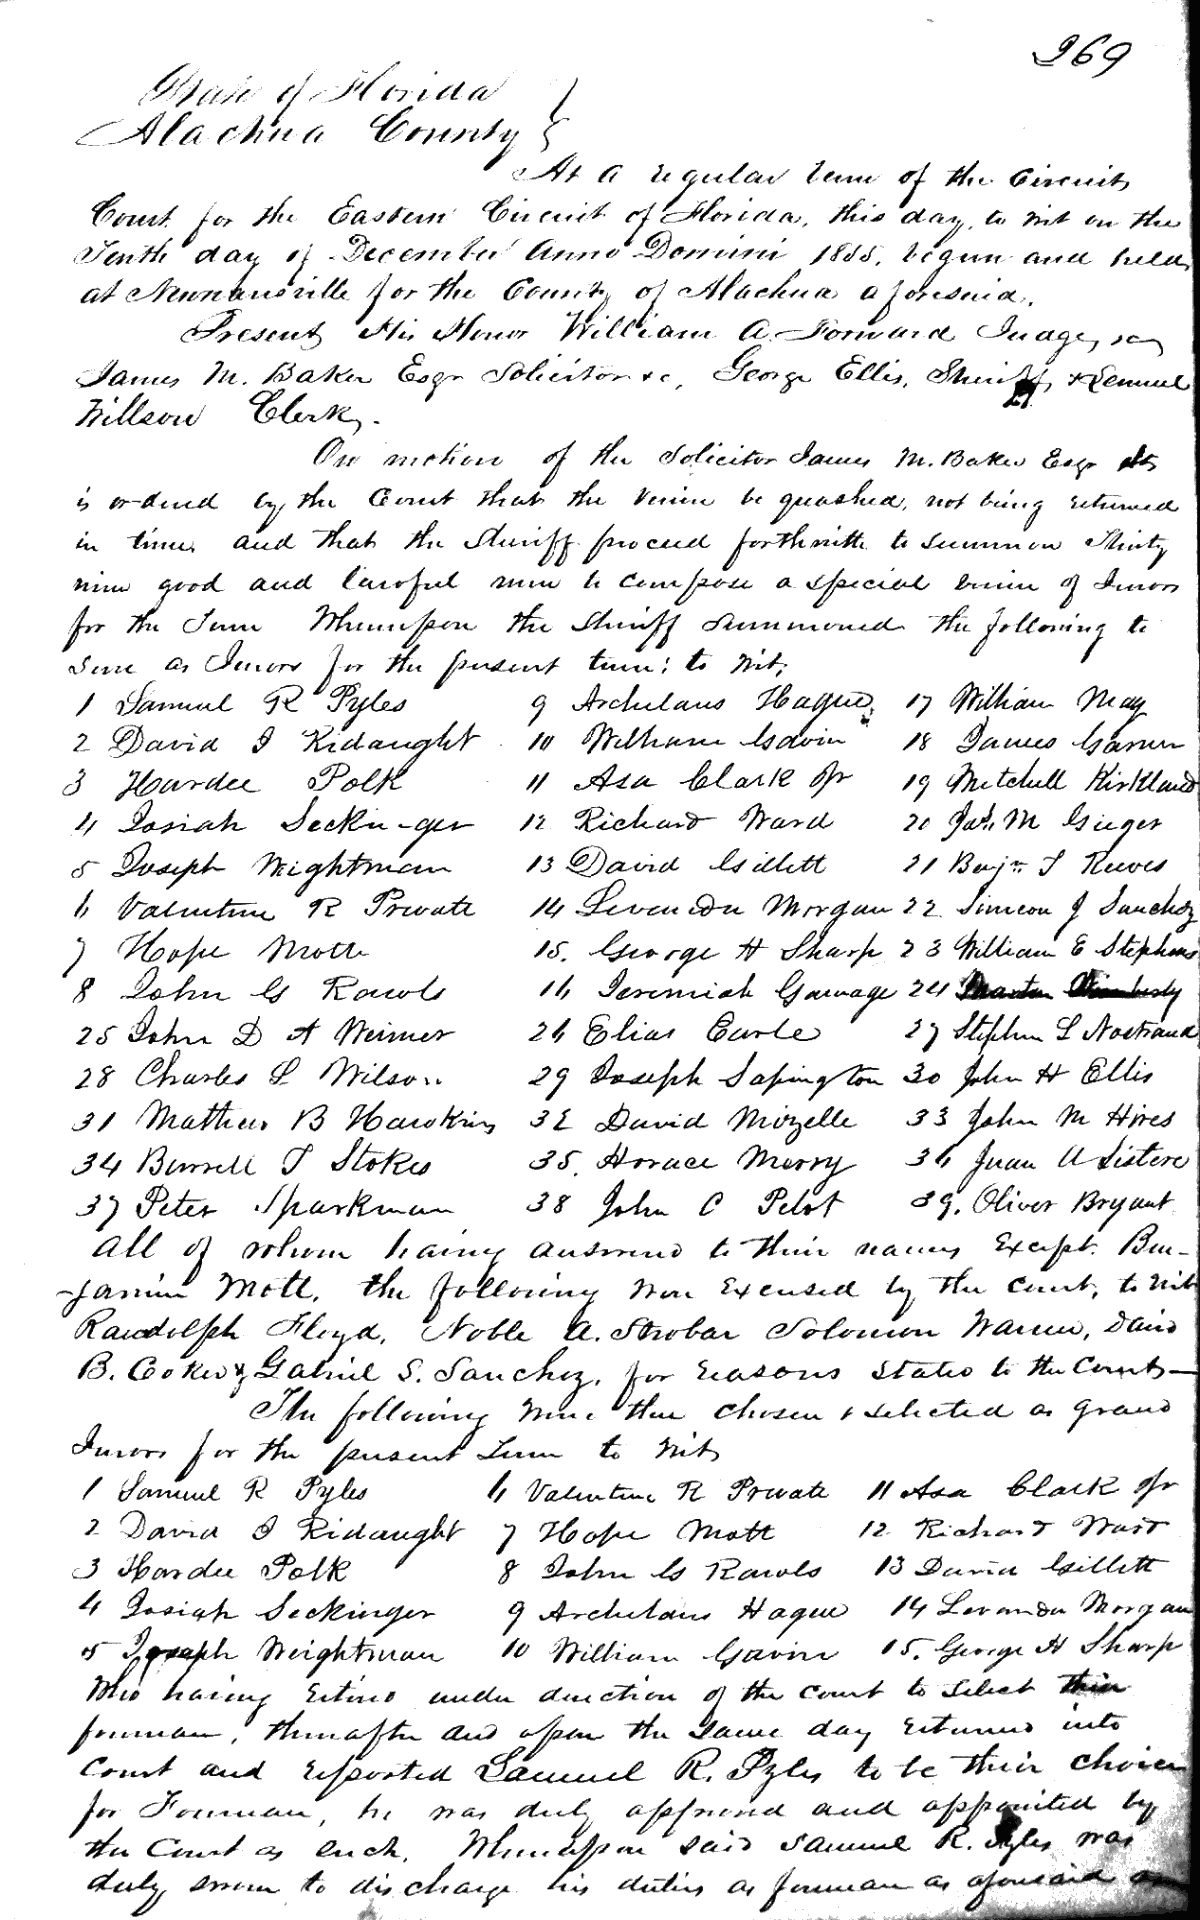 269
State of Florida }
Alachua County }
At a regular term of the Circuit
Court for the Eastern Circuit of Florida, this day, to wit on the
Tenth day of December Anno Domini 1855, begun and held
at Newnansville for the County of Alachua aforesaid.
Present His Honor William A. Forward Judge, &c,
James M. Baker Esqr Solicitor &c, George Ellis, Sheriff, & Lemuel
Willson Clerk.
On motion of the Solicitor James M. Baker Esqr It
is ordered by the Court that the Venire be quashed, not being returned
in time, and that the Sheriff proceed forthwith to summon Thirty
nine good and lawful men to compose a special venire of Jurors
for the Term Whereupon the Sheriff summoned the following to
serve as Jurors for the present term; to wit;
1 Samuel R Pyles 9 Archelaus Hague, 17 William May
2 David J Kidaught 10 William Gavin 18 James Garner
3 Hardee Polk 11 Asa Clark Jr 19 Mitchell Kirkland
4 Josiah Seckinger 12 Richard Ward 20 Jas. M Gieger
5 Joseph Weightman 13 David Gillett 21 Benjn T Reeves
6 Valentine R Prevate 14 Levander Morgan 22 Simeon J Sanchez
7 Hope Mott 15. George H Sharp 23 William E Stephens
8 John G Rawls 16 Jeremiah Gavage 24
25 John D A Weimer 26 Elias Earle 27 Stephen L Nostrand
28 Charles L Wilson 29 Joseph Sapington 30 John H Ellis
31 Mathew B Hawkins 32 David Mizelle 33 John M Hires
34 Burrell T Stokes 35. Horace Merry 36 Juan A Sistere
37 Peter Sparkman 38 John C Pelot 39. Oliver Bryant
All of whom having answered to their names Except. Ben-
-jamin Mott, the following were Excused by the Court, to wit
Randolph Floyd, Noble A. Strobar Solomon Warren, David
B. Coker & Gabriel S. Sanchez, for reasons stated to the Court—
The following were then chosen & selected as Grand
Jurors for the present Term to wit
1 Samuel R Pyles 6 Valentine R Prevate 11 Asa Clark Jr
2 David J Kidaught 7 Hope Mott 12 Richard Ward
3 Hardee Polk 8 John G Rawls 13 David Gillett
4 Josiah Seckinger 9 Archelaus Hague 14 Levander Morgan
5 Joseph Weightman 10 William Gavin 15. George H Sharp
Who having retired under direction of the Court to select their
foreman, thereafter and upon the same day returned into
Court and reported Samuel R. Pyles to be their choice
for Foreman, he was duly approved and appointed by
the Court as such. Whereupon said Samuel R. Pyles was
duly sworn to discharge his duties as foreman as aforesaid